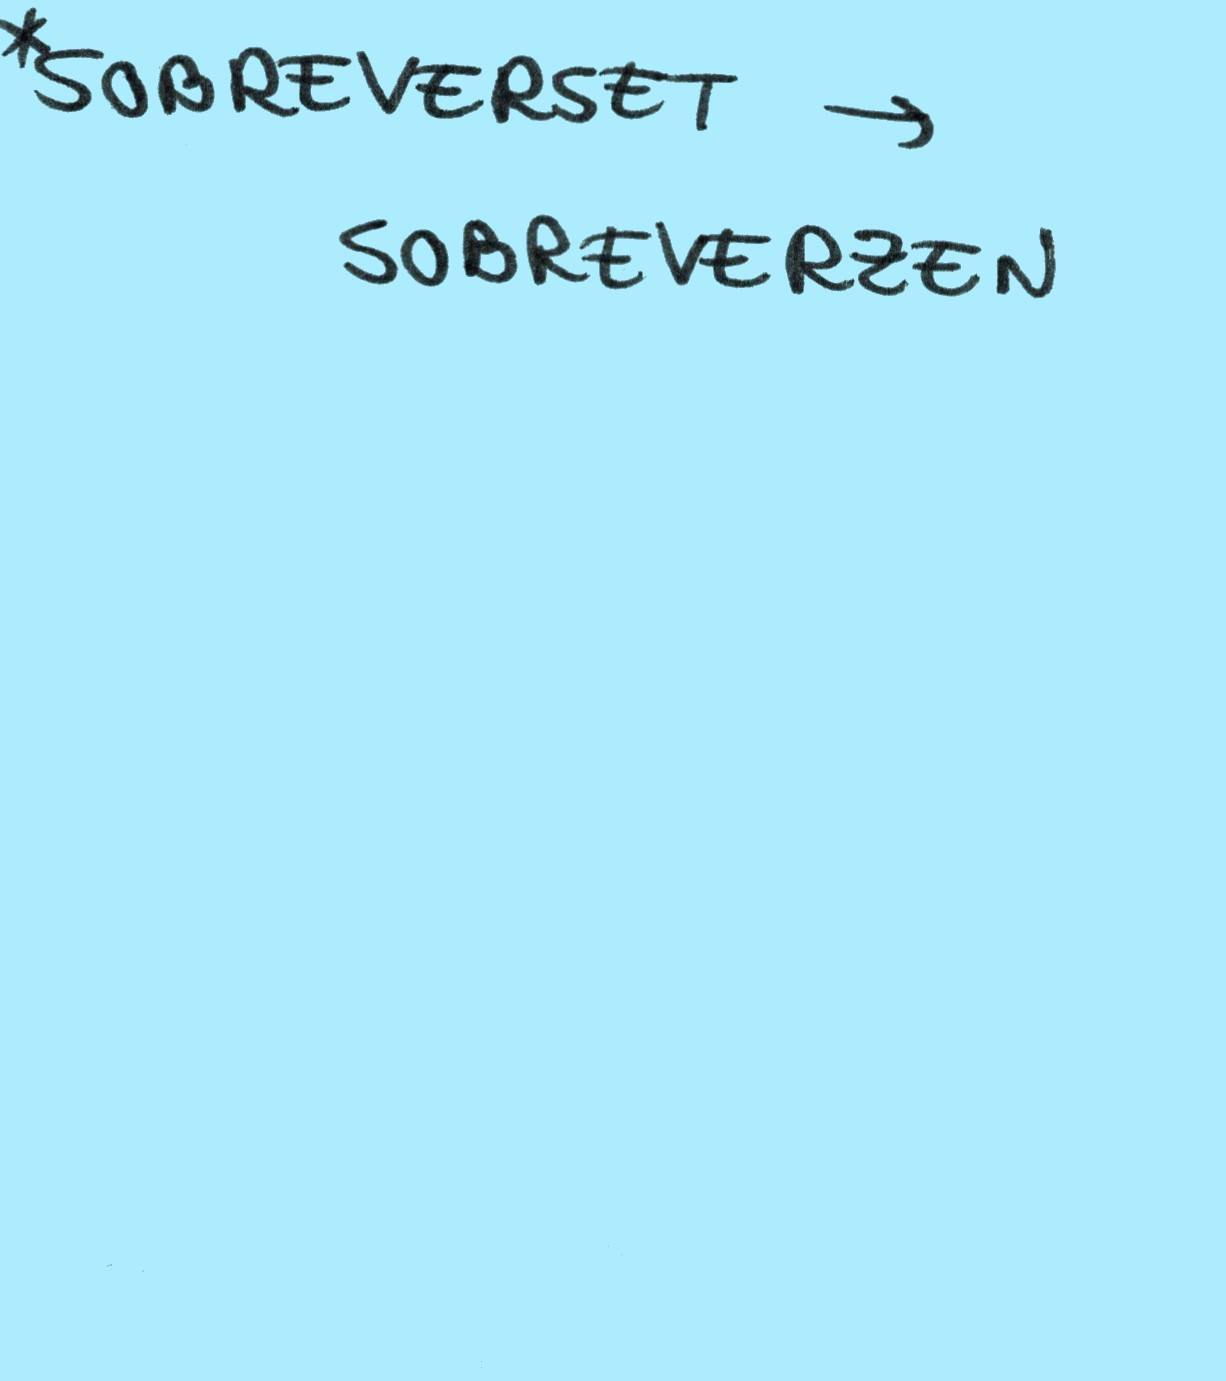 *SOBREVERSET →
SOBREVERZEN